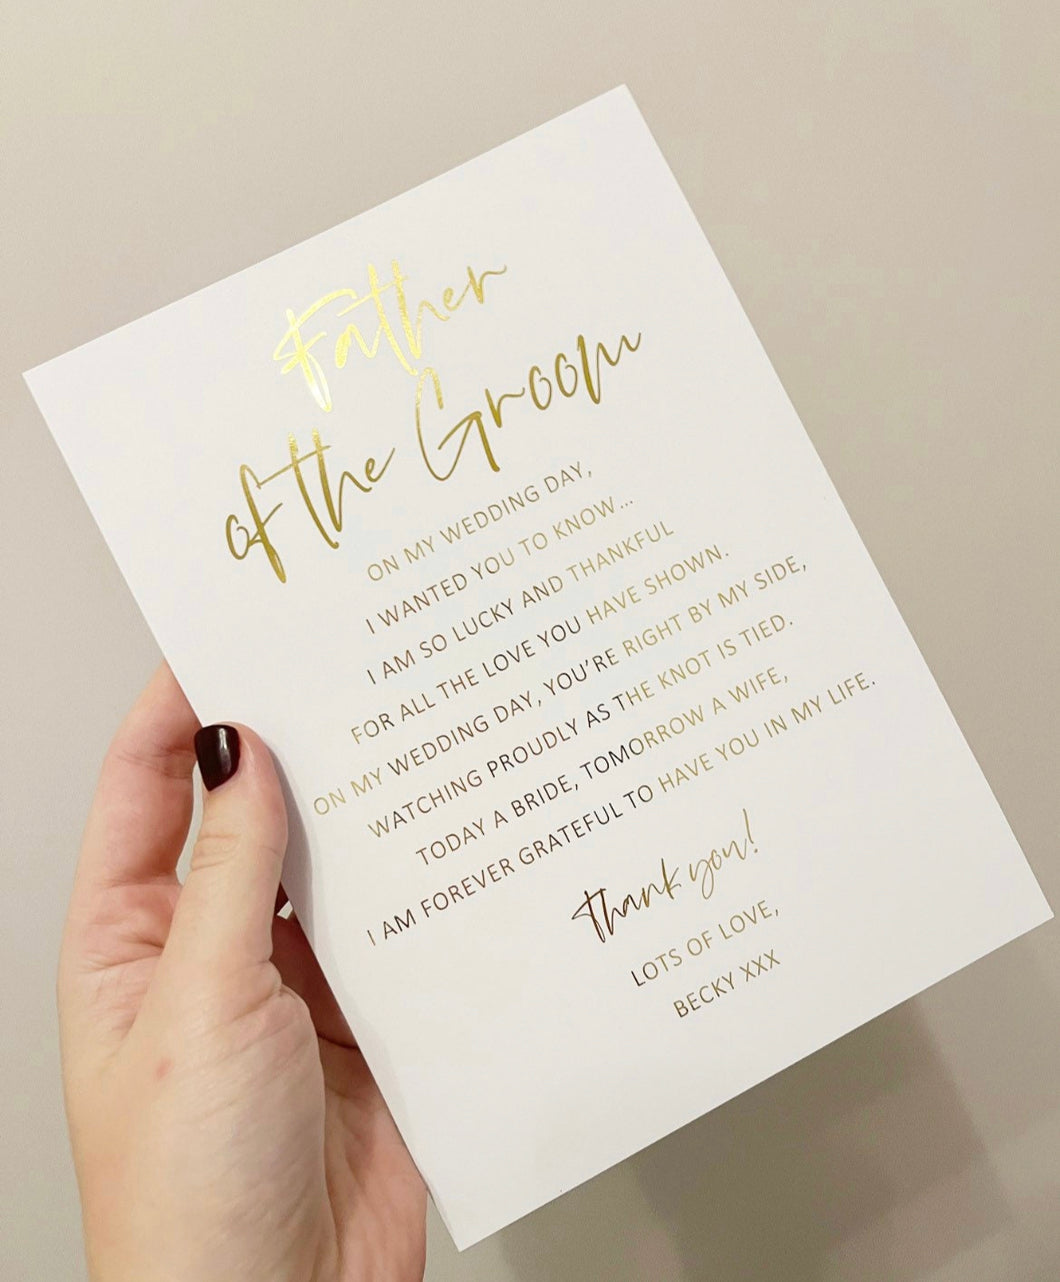 Father
of the Groom
ON MY WEDDING DAY,
I WANTED YOU TO KNOW...
I AM SO LUCKY AND THANKFUL
FOR ALL THE LOVE YOU HAVE SHOWN.
ON MY WEDDING DAY, YOU'RE RIGHT BY MY SIDE,
WATCHING PROUDLY AS THE KNOT IS TIED.
TODAY A BRIDE, TOMORROW A WIFE,
I AM FOREVER GRATEFUL TO HAVE YOU IN MY LIFE.
thank you!
LOTS OF LOVE,
BECKY XXX